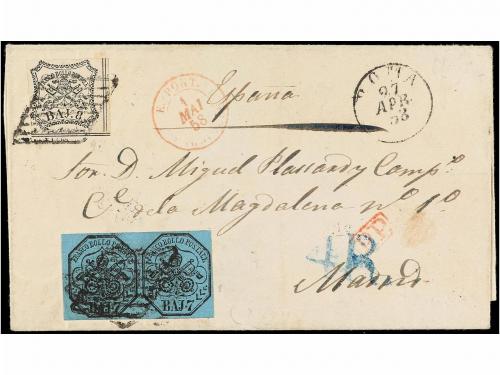 FRANCO BOLLO POSTALE
BAJ. 8
E. PONT.
1
MAI
58
ROMA
27
APR
58
España
Sor. D. Miguel Plassard y Compª
Cº de la Magdalena nº 1º
4R
Madrid
FRANCO BOLLO POSTALE
BAJ. 7
FRANCO BOLLO POSTALE
BAJ. 7